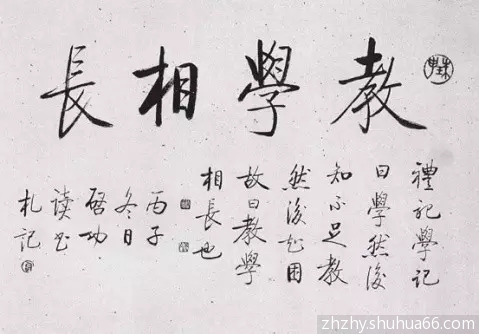 教學相長
禮記學記
曰學然後
知不足教
然後知困
故曰教學
相長也
丙子
冬日
啓功
读书
札記
zhzhy.shuhua66.com